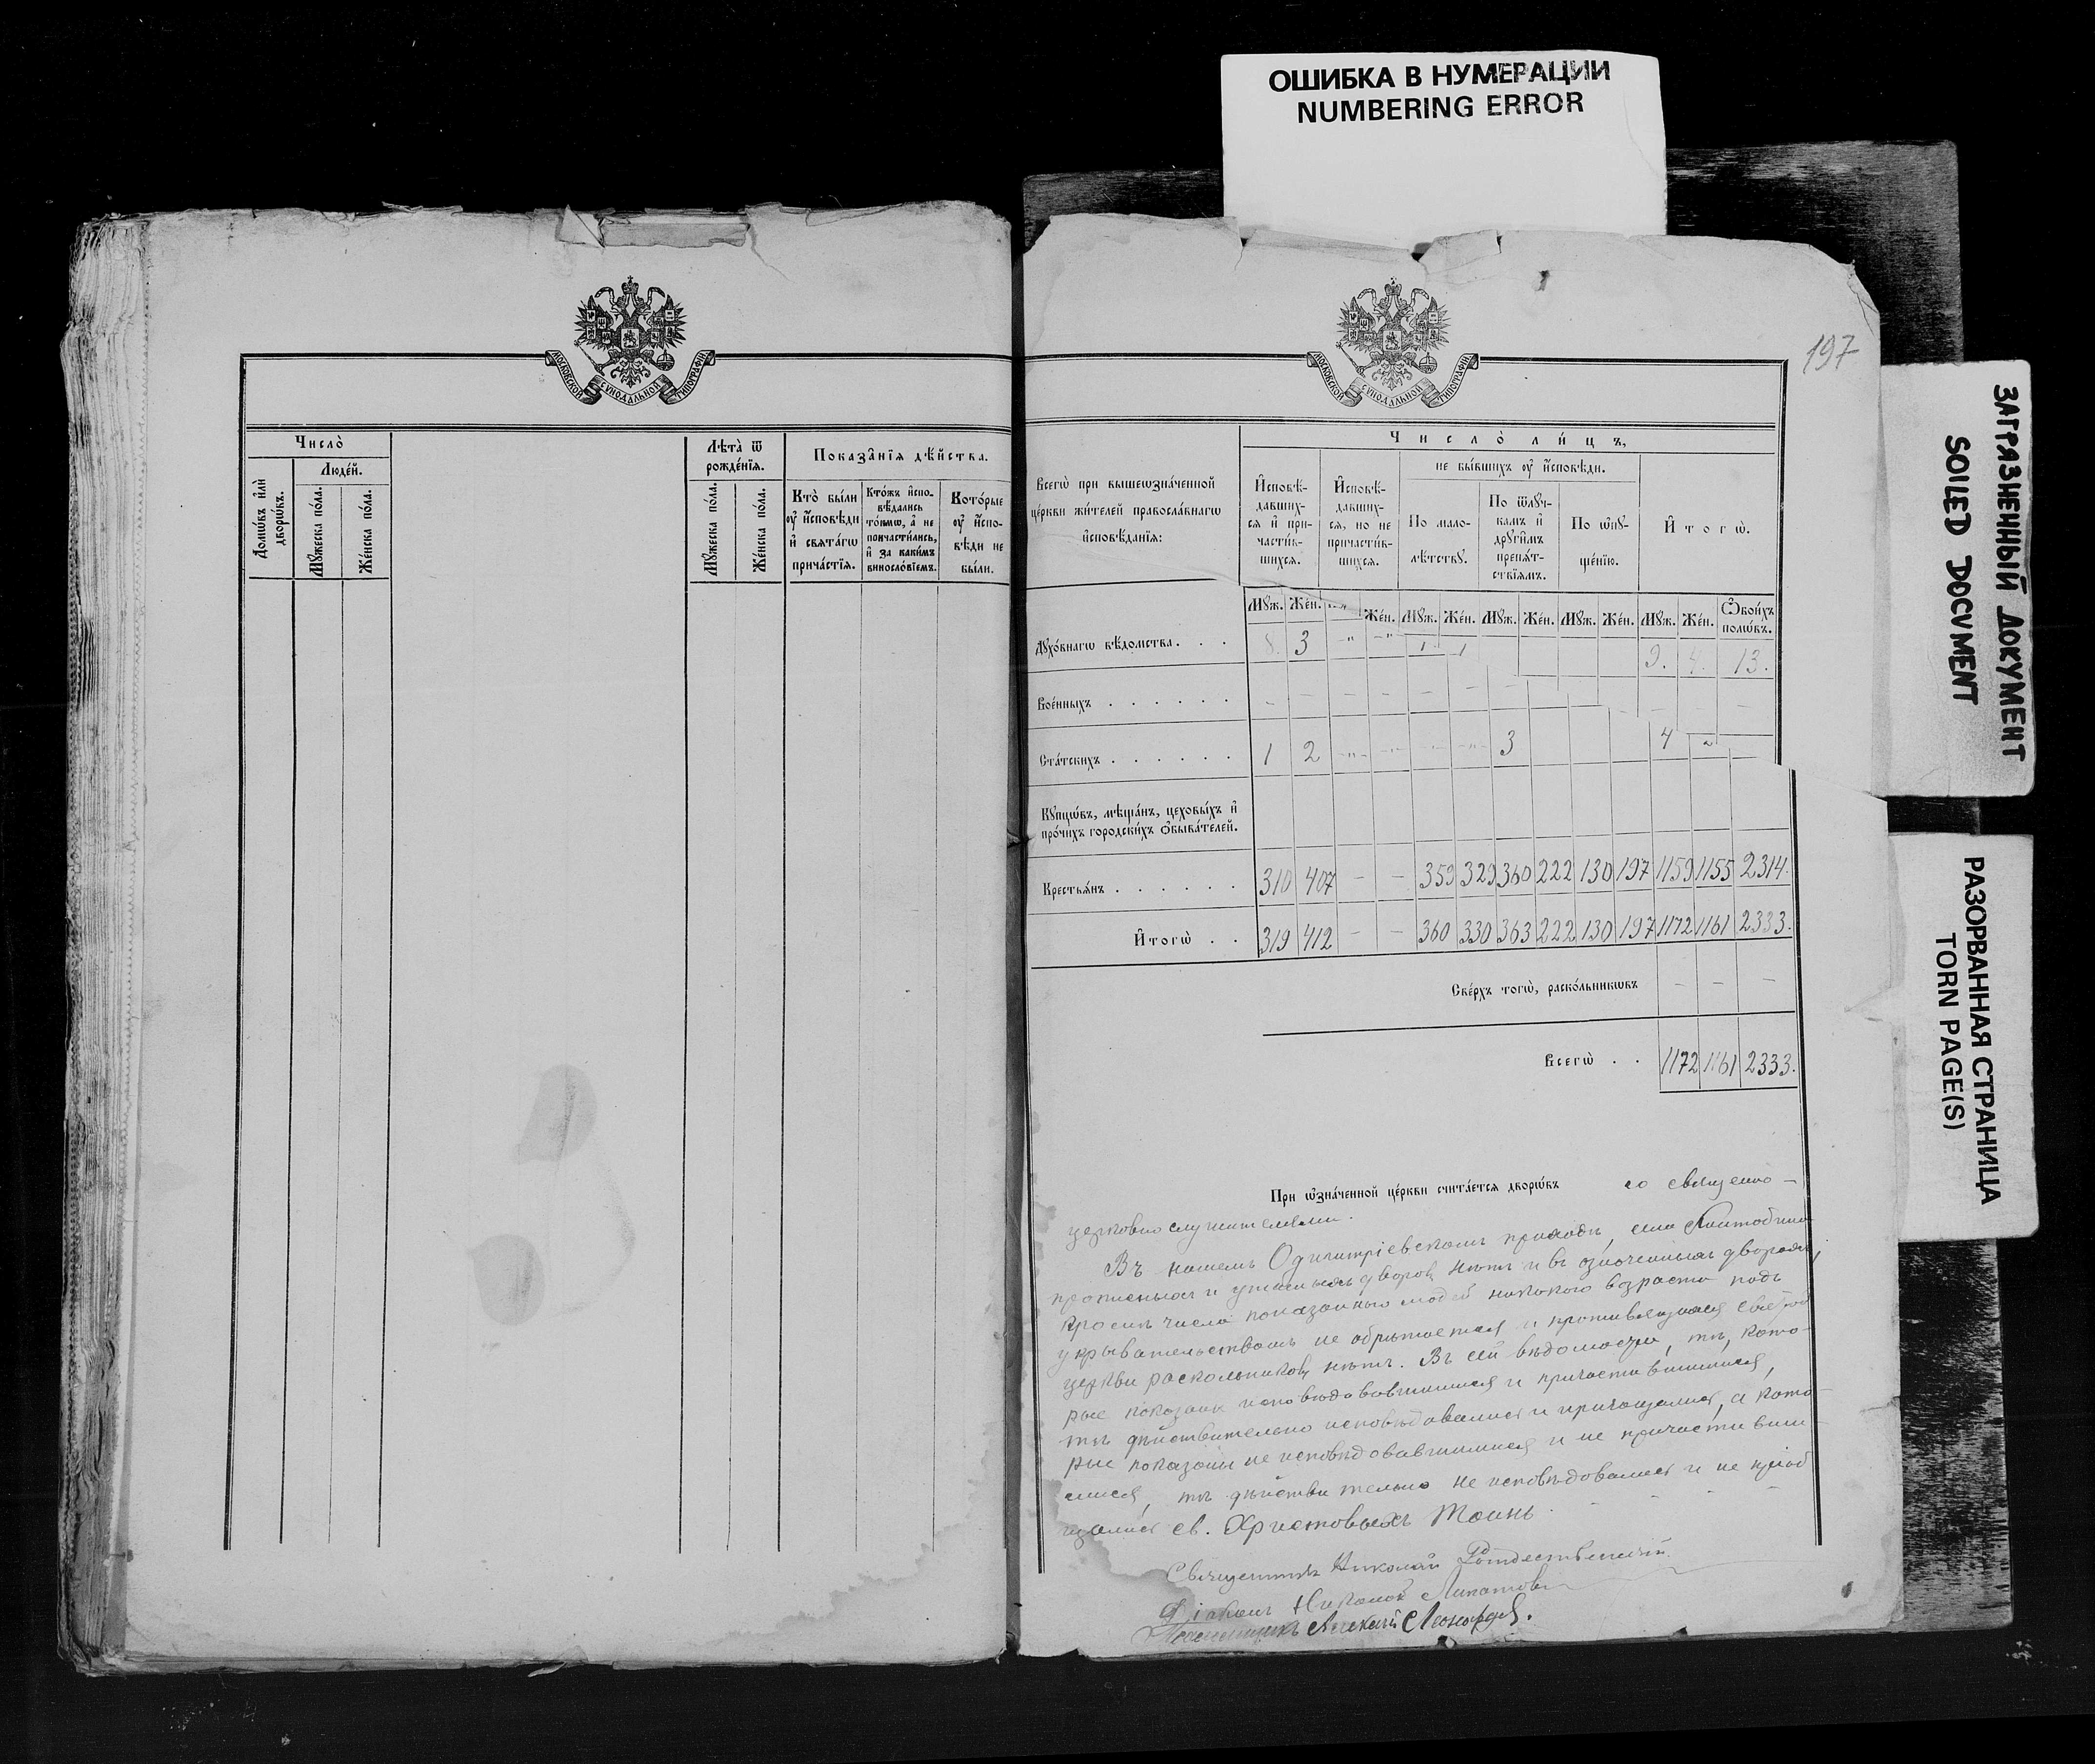 ОШИБКА В НУМЕРАЦИИ
NUMBERING ERROR
ЗАГРЯЗНЕННЫЙ ДОКУМЕНТ
SOILED DOCUMENT
РАЗОРВАННАЯ СТРАНИЦА
TORN PAGE(S)
МОСКОВСКОЙ СУНОДАЛЬНОЙ ТИПОГРАФІИ
Число̀
Домѡ́въ и҆лѝ дворѡ́въ.
Люде́й.
Мꙋ́жеска по́ла.
Же́нска по́ла.
Лѣта̀ ѿ рожде́нїѧ.
Мꙋ́жеска по́ла.
Же́нска по́ла.
Показа̑нїѧ дѣ́йства.
Кто̀ бы́ли ᲂу҆ и҆́сповѣди и҆ свѧта́гѡ прича́стїѧ.
Кто́жъ и҆спо-
вѣ́дались
то́кмѡ, а҆ не
причасти́лись,
и҆ за каки́мъ
виносло́вїемъ.
Кото́рые
ᲂу҆ и҆́спо-
вѣди не
бы́ли.
МОСКОВСКОЙ СУНОДАЛЬНОЙ ТИПОГРАФІИ
197
Всегѡ̀ при вышеѡзна́ченной
це́ркви жи́телей правосла́внагѡ
и҆сповѣ́данїѧ:
Число̀ ли́цъ,
И҆сповѣ́-
давших-
сѧ и҆ при-
части́в-
шихсѧ.
И҆сповѣ́-
давших-
сѧ, но не
причасти́в-
шихсѧ.
не бы́вшихъ ᲂу҆ и҆́сповѣди.
По мало-
лѣ́тствꙋ.
По ѿлꙋ́ч-
камъ и҆
дрꙋги̑мъ
препѧ́т-
ствїѧмъ.
По ѡ҆пꙋ-
ще́нїю.
И҆тогѡ̀.
Мꙋж. Жен. Жен. Мꙋж. Жен. Мꙋж. Жен. Мꙋж. Жен. Мꙋж. Жен. Ѻ҆бои́хъ полѡ́въ.
Дꙋхо́внагѡ вѣ́домства. . . 8. 3 -"- -"- 1 1 9. 4. 13.
Вое́нныхъ . . . . . . - - - - - - - - - -
Ста́тскихъ . . . . . . 1 2 -"- -"- -"- -"- 3 4 2
Кꙋпцѡ́въ, мѣща́нъ, цеховы́хъ и҆
про́чихъ городски́хъ ѻ҆быва́телей.
Крестьѧ́нъ . . . . . . 310 407 - - 359 329 360 222 130 197 1159 1155 2314.
И҆тогѡ̀ . . 319 412 - - 360 330 363 222 130 197 1172 1161 2333.
Све́рхъ тогѡ̀, раско́льникѡвъ - - -
Всегѡ̀ . . 1172 1161 2333.
При ѡ҆зна́ченной це́ркви счита́етсѧ дворѡ́въ со священно-
церковнослужителями.
Въ нашемъ Одигитріевскомъ приходѣ, села
прописныхъ и утаенныхъ дворовъ нѣтъ и въ означенныхъ дворахъ,
кромѣ числа показанныхъ людей никакого возраста подъ
укрывательствомъ не обрѣтается и противящихся святой
церкви раскольниковъ нѣтъ. Въ сей вѣдомости, тѣ, кото-
рые показаны исповѣдовавшимися и причастившимися,
тѣ дѣйствительно исповѣдовались и причащались, а кото-
рые показаны не исповѣдовавшимися и не причастивши-
мися, тѣ дѣйствительно не исповѣдовались и не пріоб-
щались св. Христовыхъ Таинъ.
Священникъ Николай Рождественскій
Діаконъ Николай Липатовъ
Псаломщикъ Алексѣй